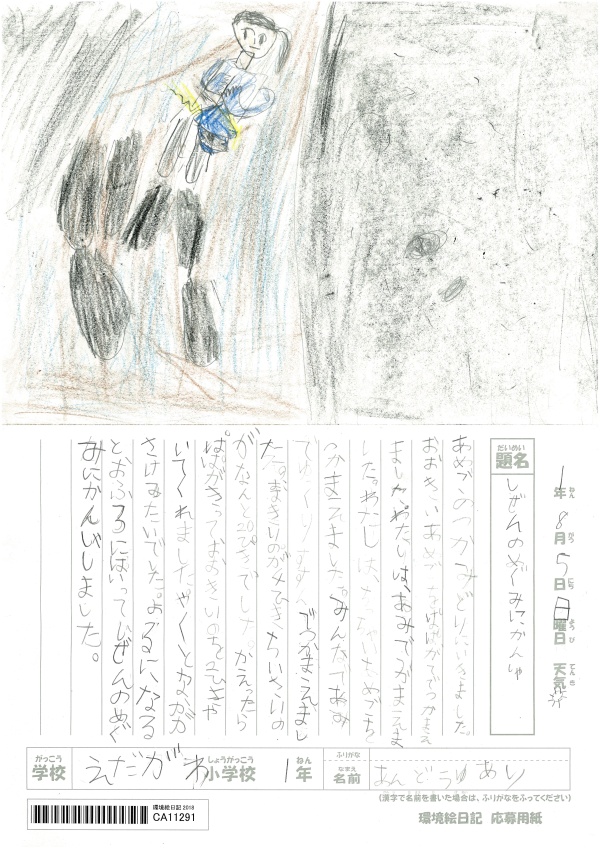 1年 8月 5日 日曜日 天気
ねん がつ にち ようび てんき
だいめい
題名
しぜんのめぐみにかんしゃ
あめごのつかみどりにいきました。
おおきいあめご
ました。わたしは、あみでつかまえま
した。わたしは、ちいさいあめごを
つかまえました。みんなであみ
でつかまえまし
た。おおきいのが4ひき、ちいさいの
がたんと20ぴきでした。かえったら
ぱぱがきっておおきいのを2ひきや
いてくれました。やくとなかが
さけみたいでした。よぶるになる
とおふろにはいってしぜんのめぐ
みにかんじしました。
がっこう
学校
えだがわ小学校
しょうがっこう
1年
ねん
ふりがな
なまえ
名前
あんどうゆあり
(漢字で名前を書いた場合は、ふりがなをふってください)
環境絵日記 2018
CA11291
環境絵日記 応募用紙